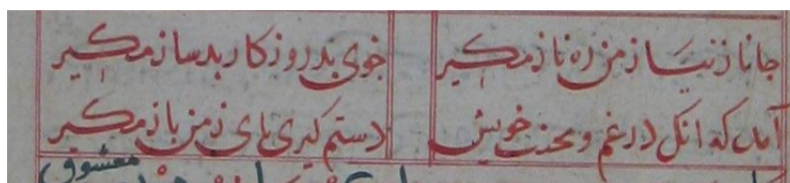 جانا ز نیاز من ره ناز مکیر
خوی بد روزکار بد ساز مکیر
آمد که انک در غم و محنت خویش
دستم کیری بای ز من باز مکیر
معشوق